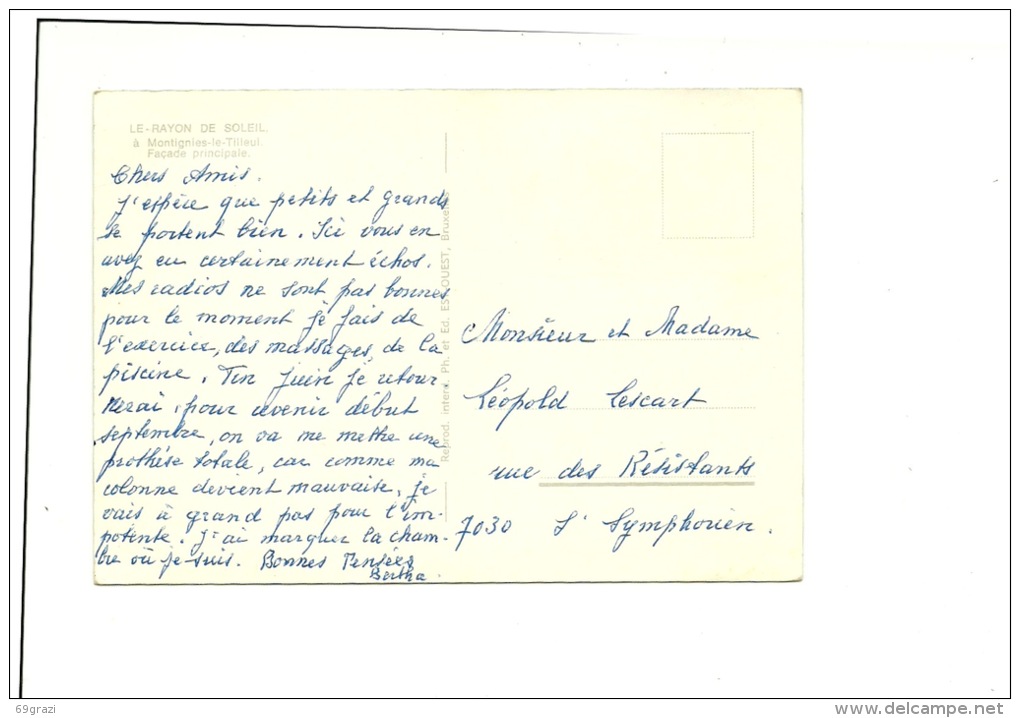 LE-RAYON DE SOLEIL.
à Montignies-le-Tilleul.
Façade principale.
Chers Amis.
J'espére que petits et grands
se portent bien. Ici vous en
avez eu certainement échos.
Mes radios ne sont pas bonnes
pour le moment je fais de
l'exercice, des massages, de la
piscine. Fin Juin je retour
nerai, pour avenir début
septembre, on va me mettre une
prothèse totale, car comme ma
colonne devient mauvaise, je
vais à grand pas pour l'im-
potente. J'ai marquer la cham-
bre où je suis. Bonnes Pensées
Bertha.
Reprod. interd. Ph. et Ed. EST-OUEST, Bruxelles
Monsieur et Madame
Léopold Lescart
rue des Résistants
7030 St Symphorien.
69grazi
delcampe.net